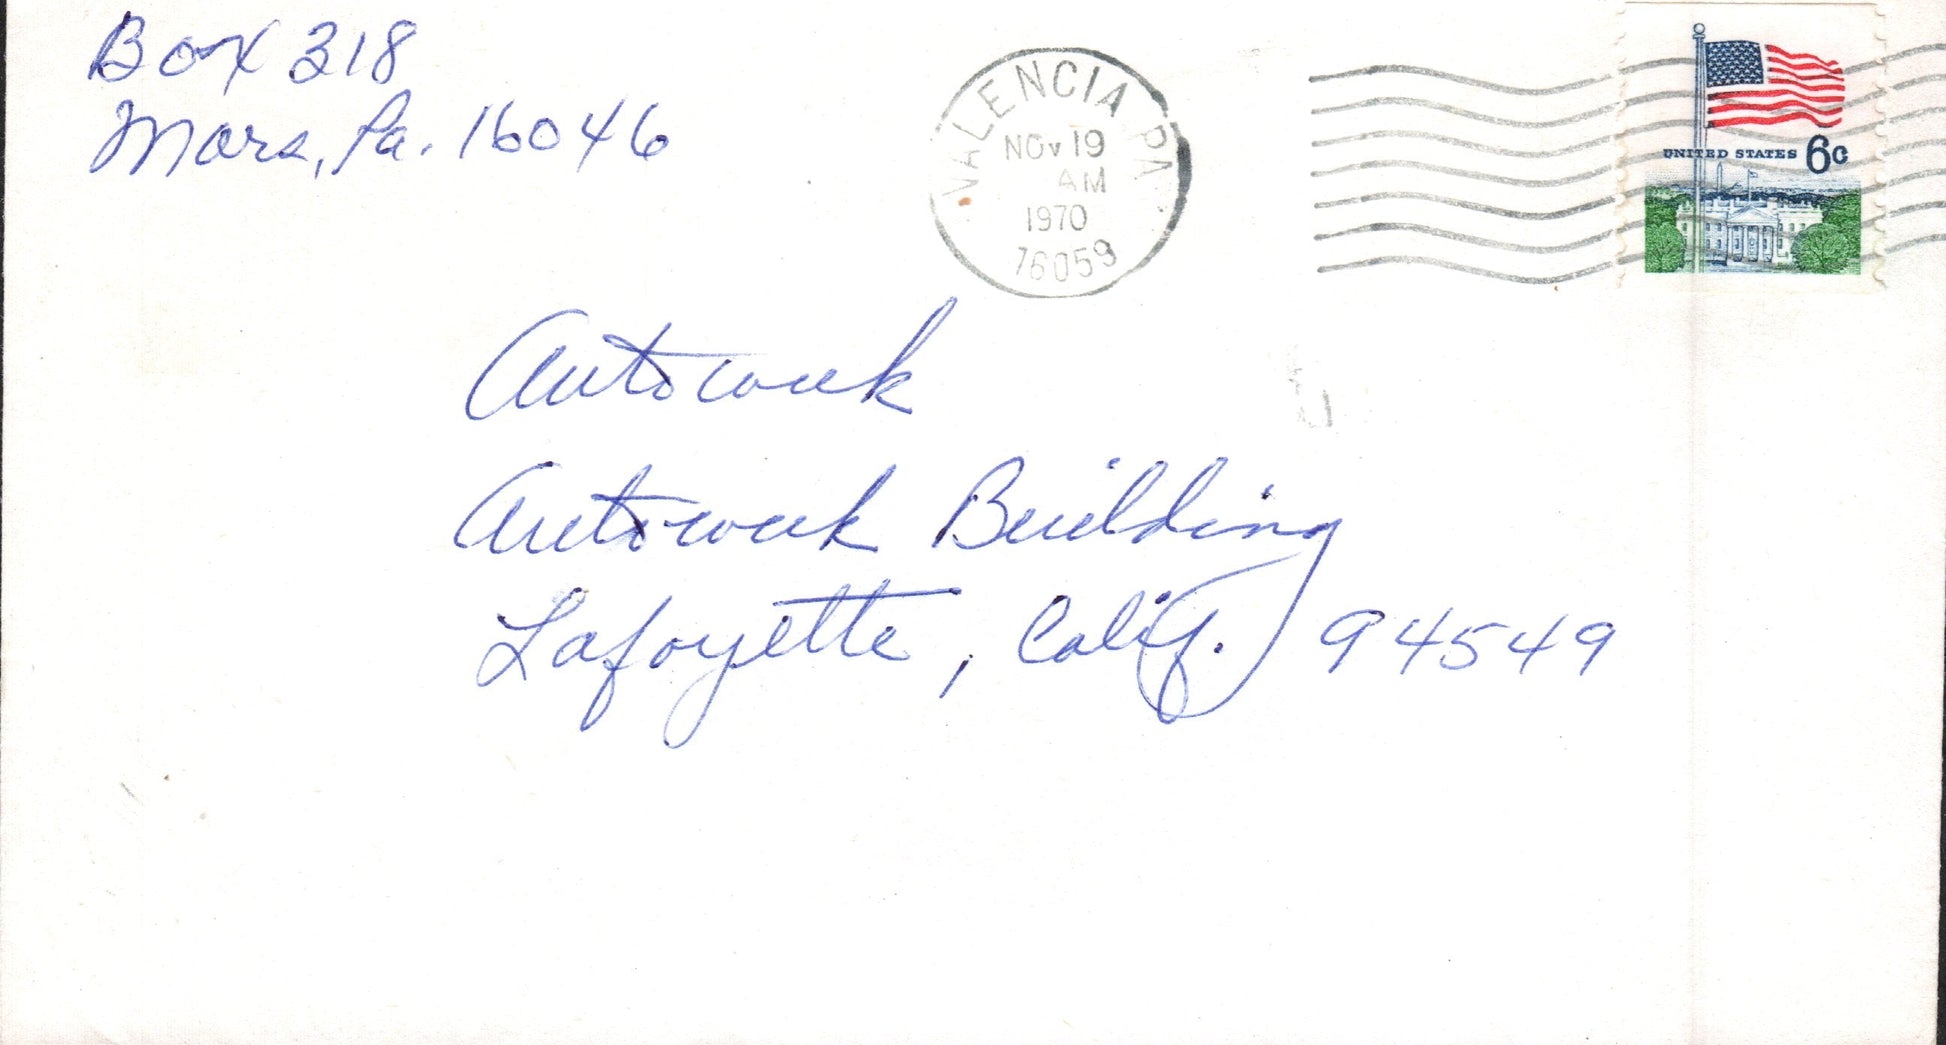 Box 318
Mars, Pa. 16046
VALENCIA PA
NOV 19
AM
1970
16059
UNITED STATES 6c
Autoweek
Autoweek Building
Lafayette, Calif. 94549